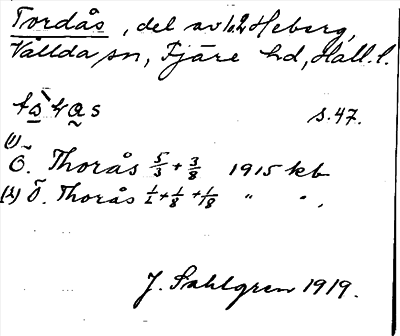 Tordås, del av 1. 2 Heberg,
Vallda sn, Fjäre hd, Hall. l.
s. 47.
(1)
Ö. Thorås 5/3 + 3/8 1915 kb
(2) Ö. Thorås 1/4 + 1/8 + 1/18 " "
J. Sahlgren 1919.